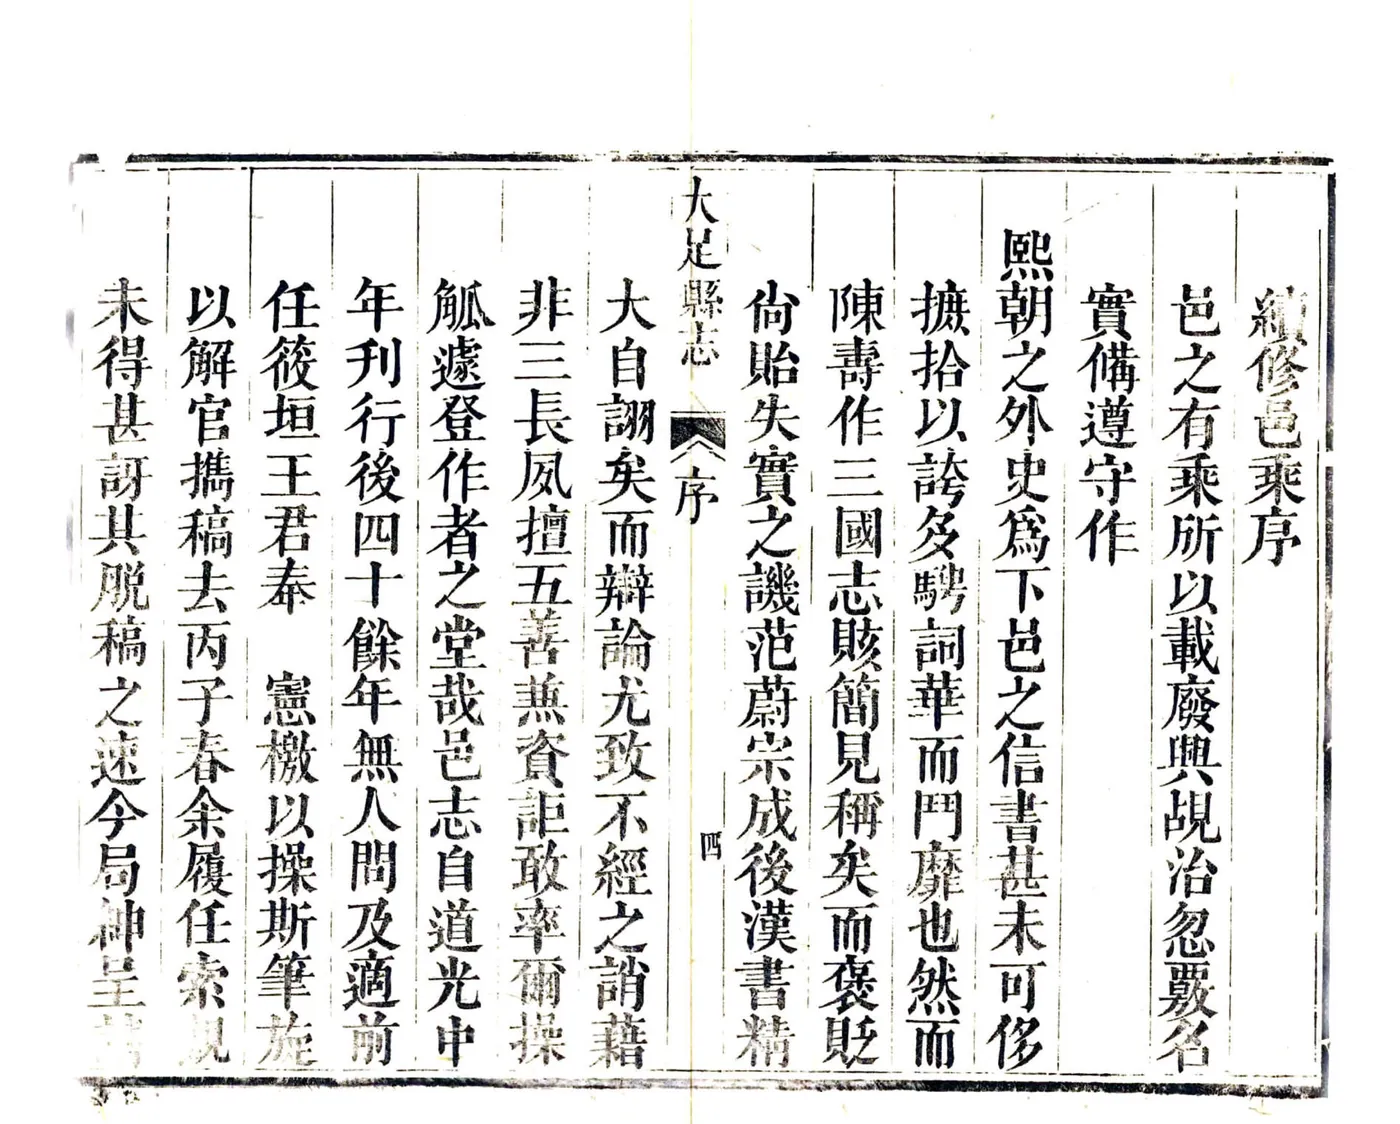 續修邑乘序
邑之有乘所以載廢興覘治忽覈名
實備遵守作
熙朝之外史爲下邑之信書甚未可侈
摭拾以誇多騁詞華而鬥靡也然而
陳壽作三國志賅簡見稱矣而褒貶
尙貽失實之譏范蔚宗成後漢書精
大足縣志
序
四
大自詡矣而辯論尤致不經之誚藉
非三長夙擅五善兼資詎敢率爾操
觚遽登作者之堂哉邑志自道光中
年刊行後四十餘年無人問及適前
任筱垣王君奉 憲檄以操斯筆旋
以解官攜稿去丙子春余履任索觀
未得甚訝其脫稿之速今局紳呈